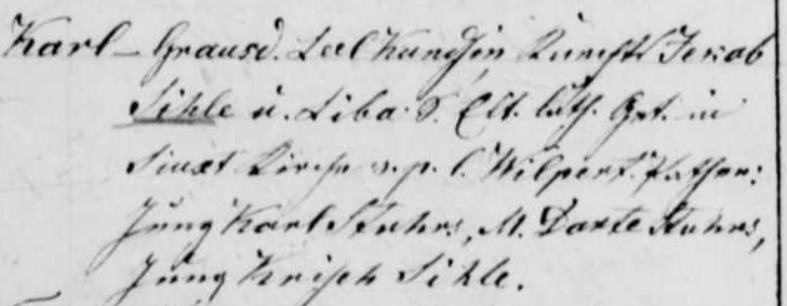 Karl – Grausd. Leel Kundsin Knechts Jekab
Sihle u. Liba: S. Elt. luth. Get. in
Siuxt Kirche v. p. l. Wilpert. Pathen:
Jung Karl Stuhrs, M. Darte Stuhrs,
Jung Krisch Sihle.